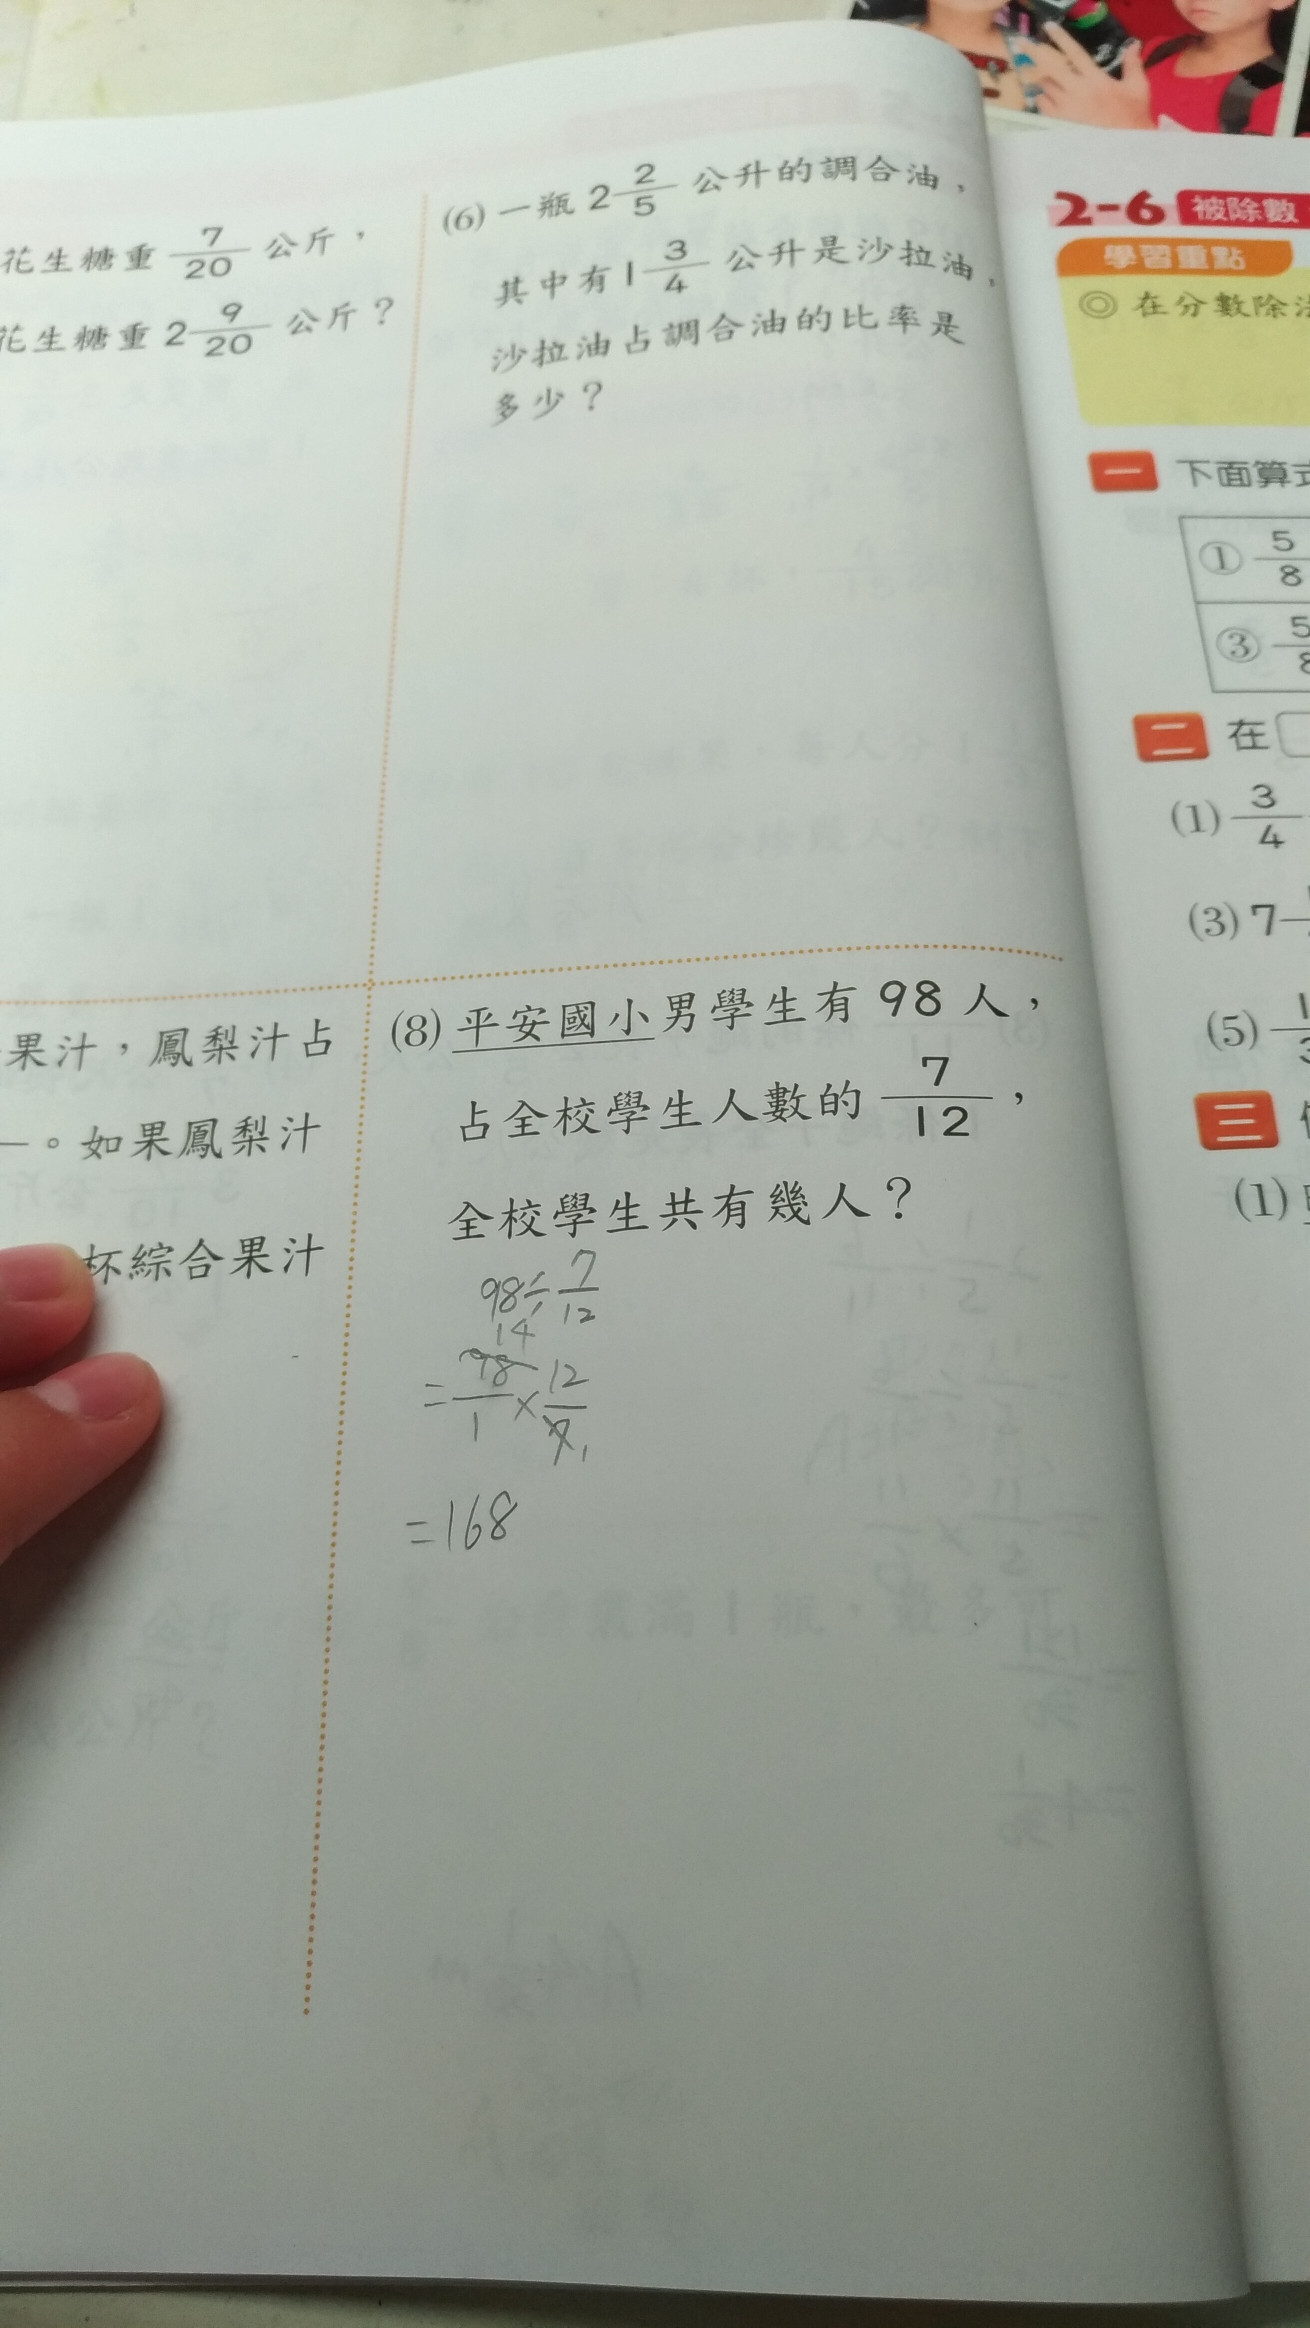 花生糖重 7/20 公斤，
花生糖重 2 9/20 公斤？
(6) 一瓶 2 2/5 公升的調合油，
其中有 1 3/4 公升是沙拉油，
沙拉油占調合油的比率是
多少？
果汁，鳳梨汁占
。如果鳳梨汁
杯綜合果汁
(8) 平安國小男學生有 98 人，
占全校學生人數的 7/12，
全校學生共有幾人？
98÷7/12
14
=98/1×12/7 1
=168
2-6 被除數
學習重點
◎ 在分數除法
一 下面算式
① 5/8
③ 5/8
二 在
(1) 3/4
(3) 7
(5) 1/3
三
(1)